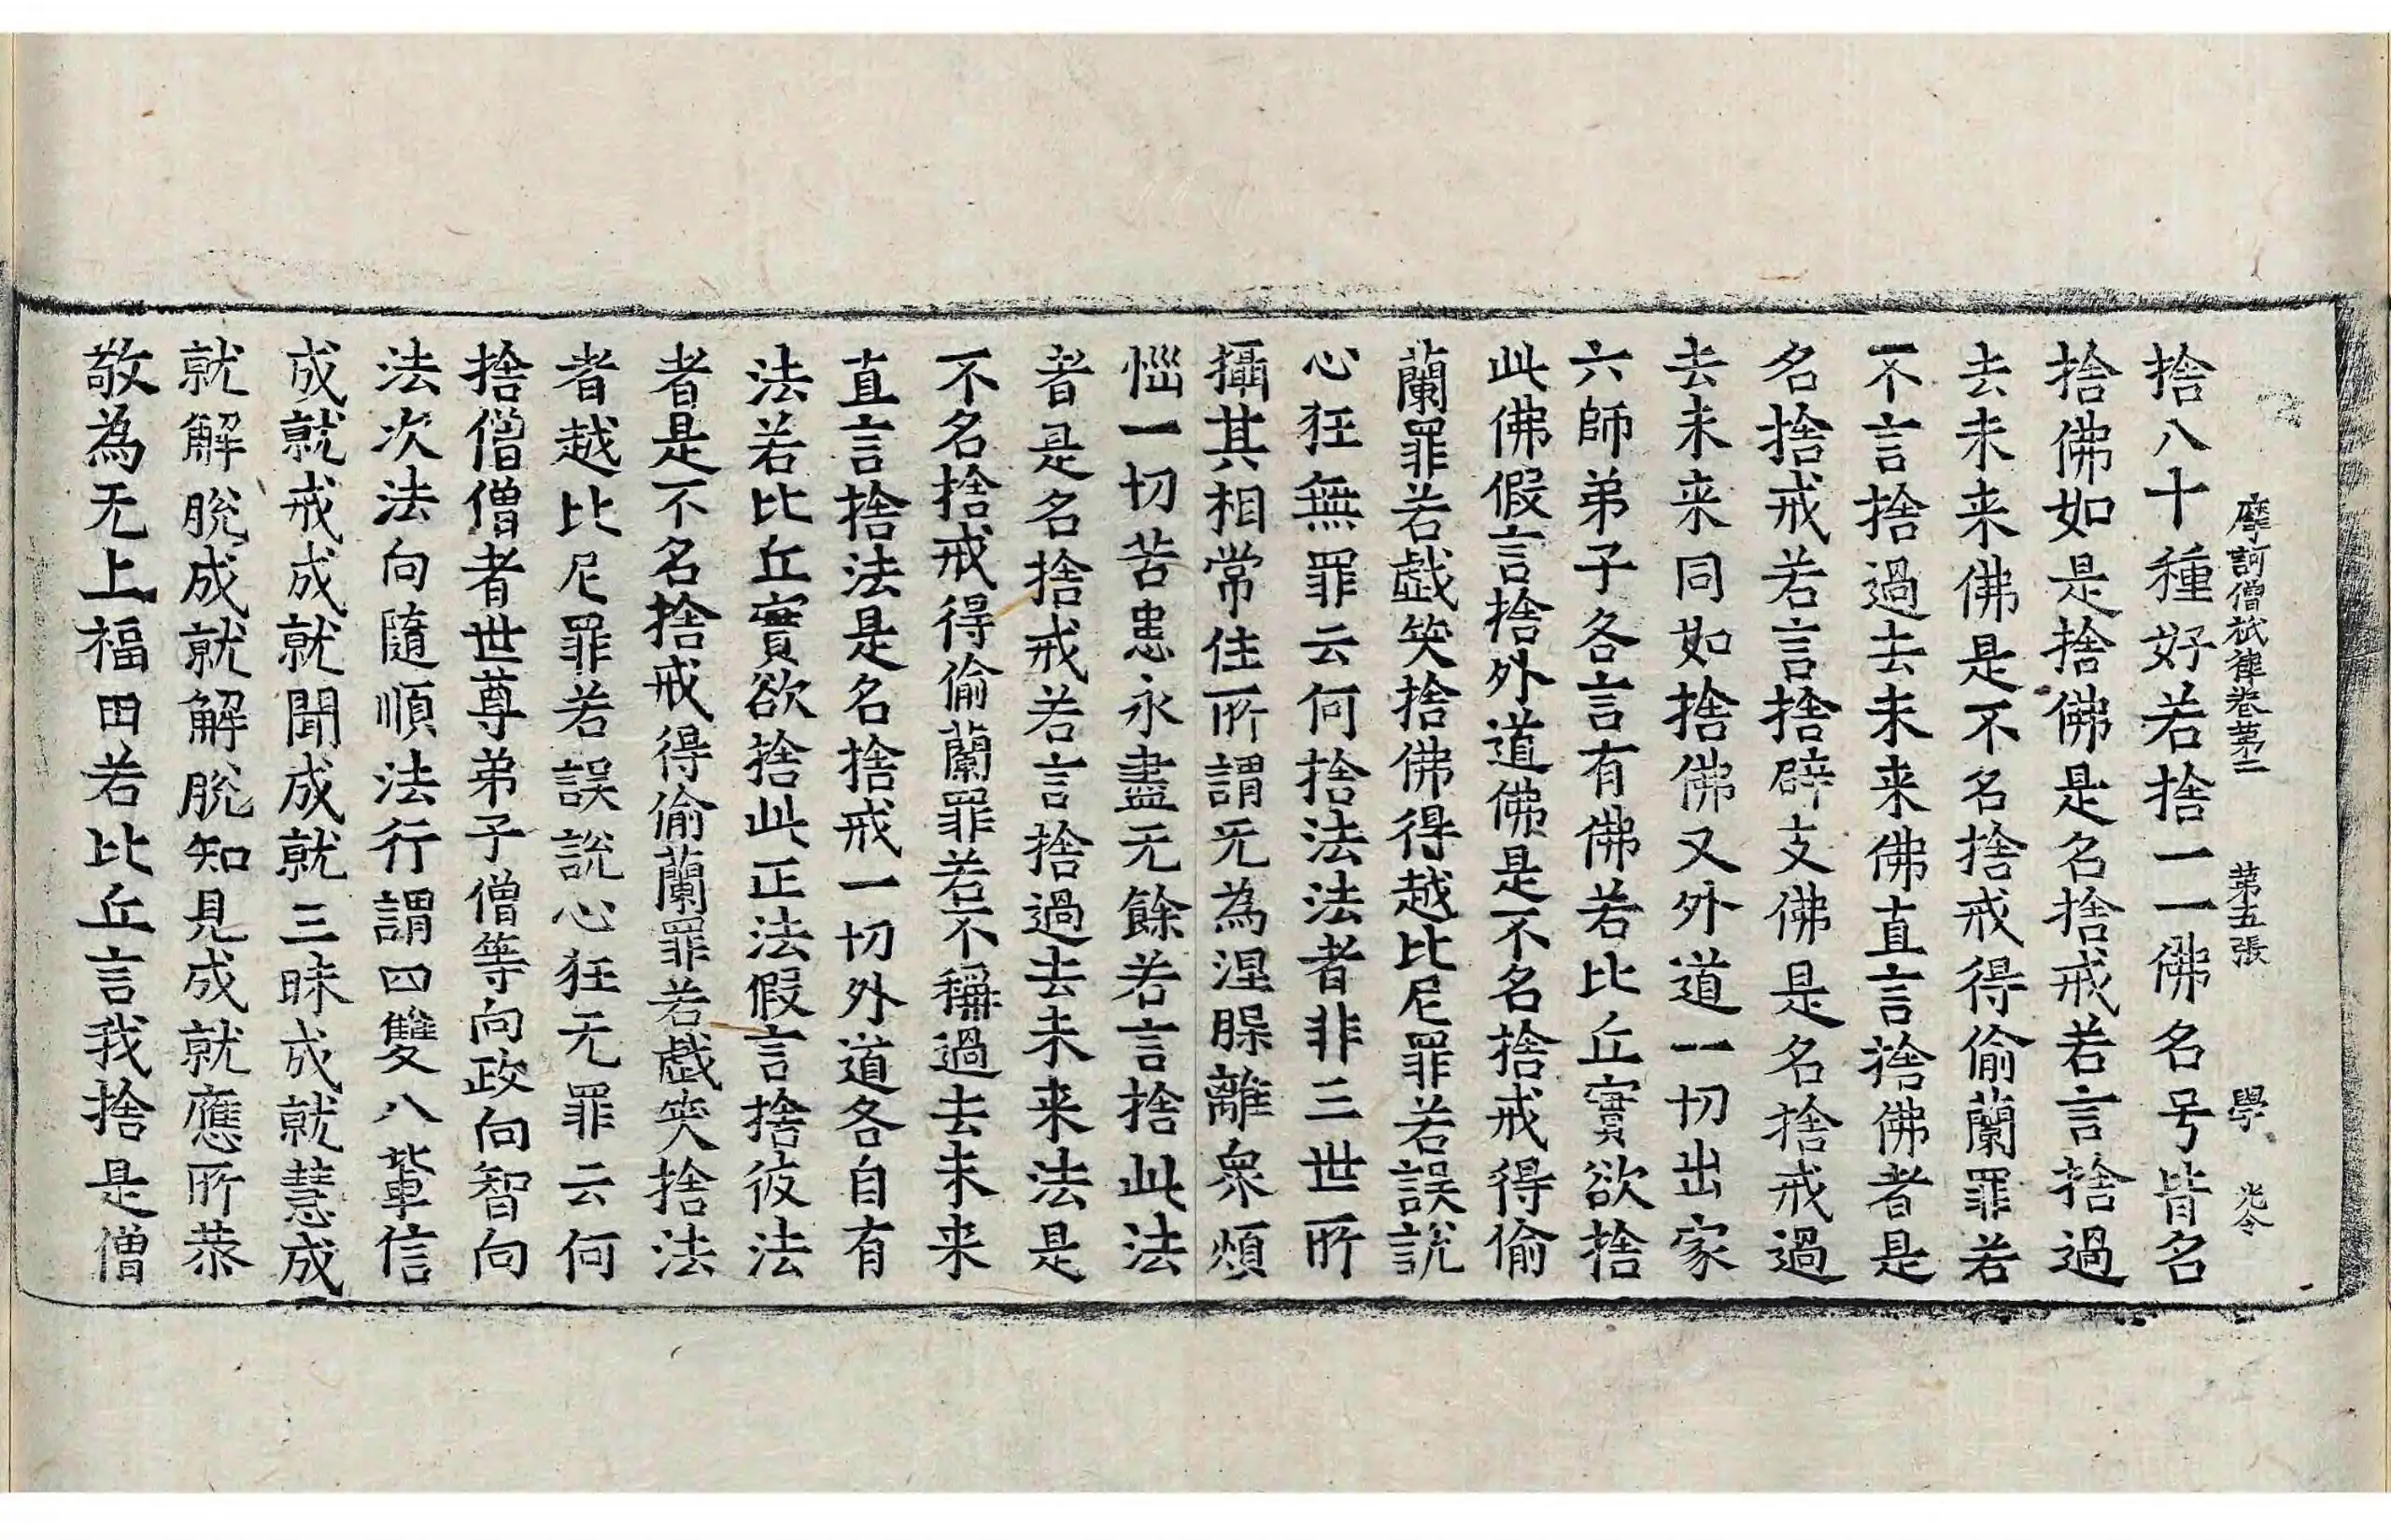 摩訶僧祇律卷第二 第五張 學
捨八十種好若捨一一佛名号皆名
捨佛如是捨佛是名捨戒若言捨過
去未来佛是不名捨戒得偷蘭罪若
不言捨過去未来佛直言捨佛者是
名捨戒若言捨辟支佛是名捨戒過
去未来同如捨佛又外道一切出家
六師弟子各言有佛若比丘實欲捨
此佛假言捨外道佛是不名捨戒得偷
蘭罪若戱笑捨佛得越比尼罪若誤說
心狂無罪云何捨法法者非三世所
攝其相常住所謂无為涅脲離衆煩
惱一切苦患永盡无餘若言捨此法
者是名捨戒若言捨過去未来法是
不名捨戒得偷蘭罪若不稱過去未来
直言捨法是名捨戒一切外道各自有
法若比丘實欲捨此正法假言捨彼法
者是不名捨戒得偷蘭罪若戱笑捨法
者越比尼罪若誤說心狂无罪云何
捨僧僧者世尊弟子僧等向政向智向
法次法向隨順法行謂四雙八輩信
成就戒成就聞成就三昧成就慧成
就解脫成就解脫知見成就應所恭
敬為无上福田若比丘言我捨是僧